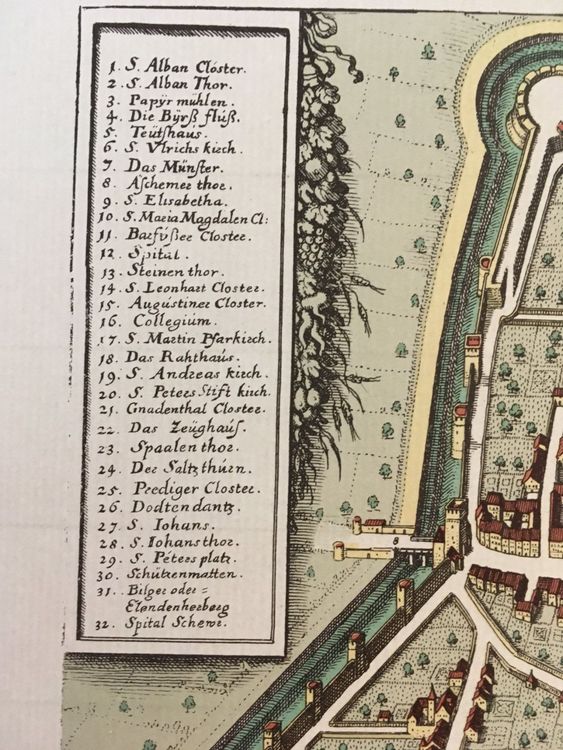 1. S. Alban Clóster.
2. S. Alban Thor.
3. Papÿr mühlen.
4. Die Bÿrß flúß.
5. Teütshaús.
6. S. Vlrichs kirch.
7. Das Münster.
8. Aschemer thor.
9. S. Elisabetha.
10. S. Maria Magdalen Cl:
11. Barfüßer Closter.
12. Spital.
13. Steinen thor.
14. S. Leonhart Closter.
15. Augustiner Closter.
16. Collegium.
17. S. Martin Pfarkirch.
18. Das Rahthaús.
19. S. Andreas kirch.
20. S. Peters Stift kirch.
21. Gnadenthal Closter.
22. Das Zeüghaúß.
23. Spaalen thor.
24. Der Saltz thúrn.
25. Prediger Closter.
26. Dodtendantz.
27. S. Iohans.
28. S. Iohans thor.
29. S. Péters platz.
30. Schützenmatten.
31. Bilger oder =
Elendenherberg
32. Spital Schewr.
8